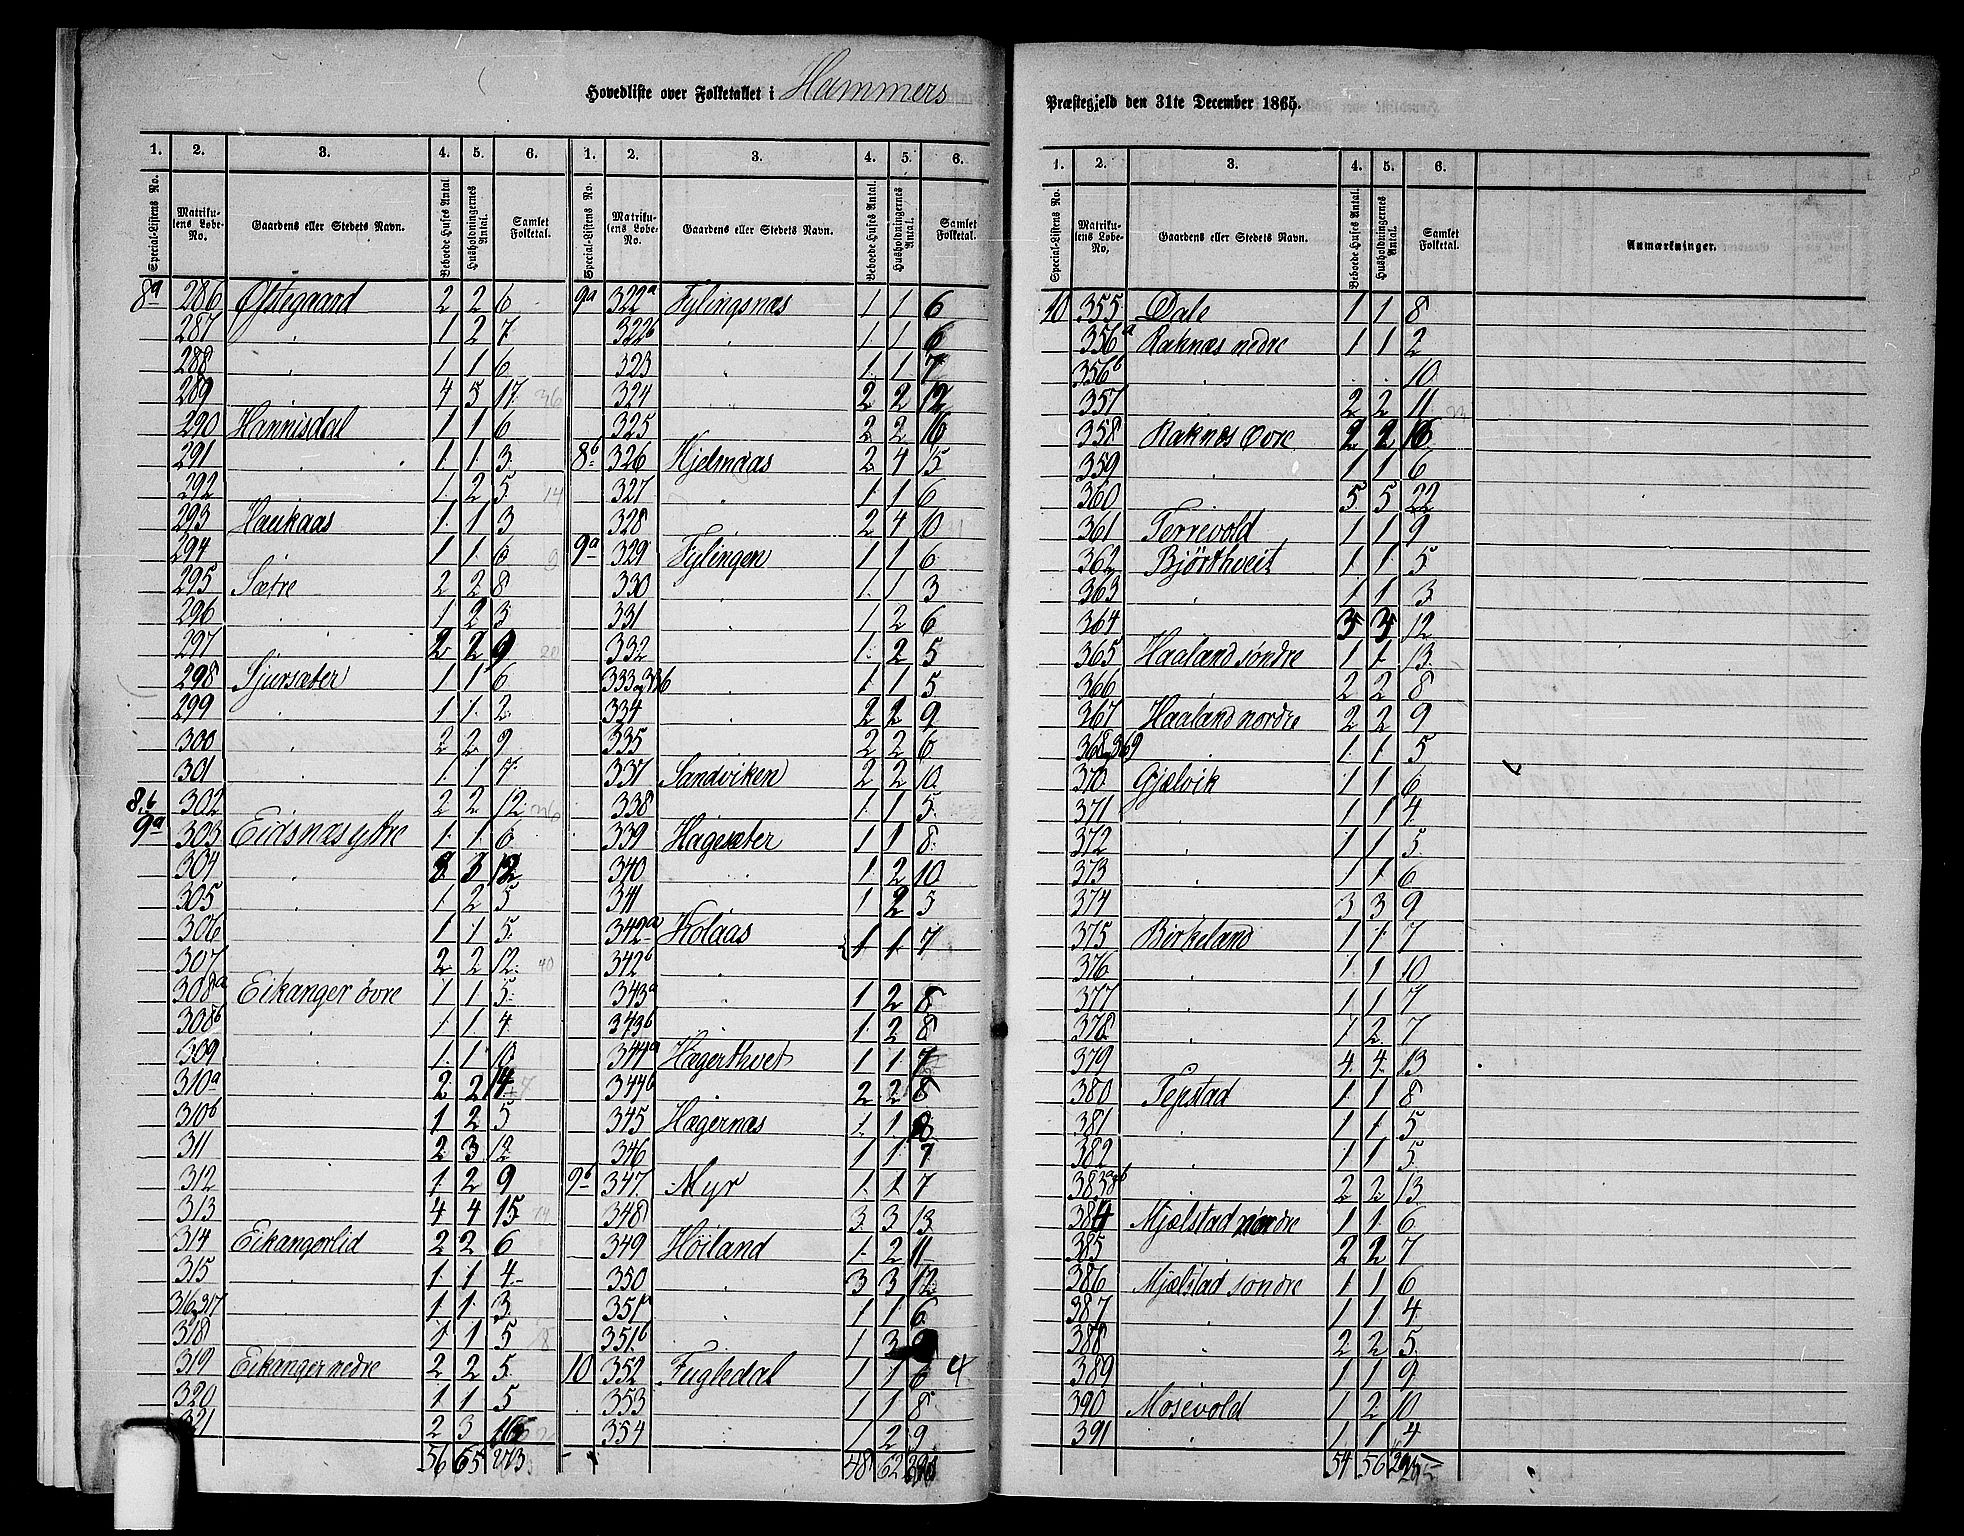 Hovedliste over Folketallet i Hammers
Præstegjeld den 31te December 1865.
1. 2. 3. 4. 5. 6. 1. 2. 3. 4. 5. 6.
Special-Listens No. Matrikulens Løbe-No. Gaardens eller Stedets Navn. Beboede Huses Antal. Husholdningernes Antal. Samlet Folketal. Special-Listens No. Matrikulens Løbe-No. Gaardens eller Stedets Navn. Beboede Huses Antal. Husholdningernes Antal. Samlet Folketal.
8a 286 Østegaard 2 2 6
287 " 1 2 7
288 " 1 1 6
289 4 5 17 36
290 Hannisdal 1 1 6
291 " 1 1 3
292 1 2 5 14
293 Haukaas 1 1 3
294 1 1 6 9
295 Sætre 2 2 8
296 " 1 2 3
297 2 2 9 20
298 Sjursæter 1 1 6
299 " 1 1 2
300 " 2 2 9
301 1 1 7
8b 302 2 2 12 36
9a 303 Eidsnæs yttre 1 1 6
304 " 12
305 1 2 5
306 1 1 5
307 2 2 12 40
308a Eikanger øvre 1 1 5
308b " 1 1 4
309 1 1 6
310a 2 2 14
310b 1 2 5
311 2 3 12
312 1 2 9
313 4 4 15
314 Eikangerlid 2 2 6
315 " 1 1 4
316 og 317 1 1 3
318 1 1 5 18
319 Eikanger nedre 2 2 5
320 1 1 5
321 2 3 16
56 65 273
9a 322a Fylingsnæs 1 1 6
322b " 1 1 6
323 1 1 7
324 " 2 2 12
325 2 2 16
8b 326 Hjelmaas 2 4 15
327 " 1 1 6
328 2 4 10
9a 329 Fylingen 1 1 6
330 " 1 1 3
331 " 1 2 6
332 1 2 5
333 og 336 " 1 1 5
334 " 2 2 9
335 2 2 6
337 Sandviken 2 2 10
338 1 1 5
339 Hagesæter 1 1 8
340 " 1 2 10
341 1 2 3
342a Kolaas 1 1 7
342b "
343a " 1 2 8
343b 1 2 8
344a Hægerthvet 1 1 7
344b 2 2 8
345 Hægernæs 1 1 8
346 1 1 7
9b 347 Myr 1 1 7
348 3 3 13
349 Høiland 1 2 11
350 " 3 3 12
351a " 1 1 6
351b 1 3 9
10 352 Fugledal 1 1 6 4
353 1 1 8
354 1 2 9
48 62
1. 2. 3. 4. 5. 6.
Special-Listens No. Matrikulens Løbe-No. Gaardens eller Stedets Navn. Beboede Huses Antal. Husholdningernes Antal. Samlet Folketal. Anmærkninger.
10 355 Dale 1 1 8
356a Raknæs nedre 1 1 2
356b " " " 10
357 2 2 11 23
358 Raknæs Øvre 2 2 16
359 1 1 6
360 5 5 22
361 Terrevold 1 1 9
362 Bjørthveit 1 1 5
363 " 1 1 3
364 3 3 12
365 Haaland søndre 1 1 13
366 2 2 8
367 Haaland nordre 2 2 9
368 og 369 1 1 5
370 Gjælvik 1 1 6
371 " 1 1 4
372 " 1 1 5
373 " 1 1 6
374 3 3 9
375 Birkeland 1 1 7
376 " 1 1 10
377 " 1 1 7
378 " 1 2 7
379 4 4 13
380 Fejstad 1 1 8
381 " 1 1 5
382 " 1 1 5
383a og b 2 2 13
384 Mjælstad nordre 1 1 6
385 2 2 7
386 Mjælstad søndre 1 1 6
387 " 1 1 4
388 " 2 2 5
389 1 1 9
390 Mosevold 1 2 10
391 1 1 4
54 56 295